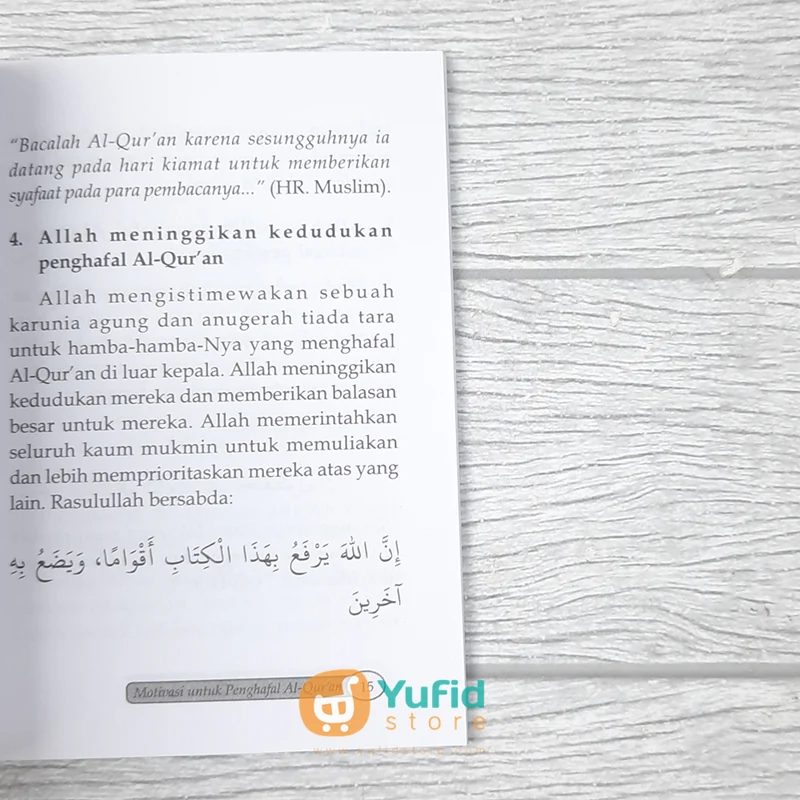 "Bacalah Al-Qur'an karena sesungguhnya ia
datang pada hari kiamat untuk memberikan
syafaat pada para pembacanya..." (HR. Muslim).
4. Allah meninggikan kedudukan
penghafal Al-Qur'an
Allah mengistimewakan sebuah
karunia agung dan anugerah tiada tara
untuk hamba-hamba-Nya yang menghafal
Al-Qur'an di luar kepala. Allah meninggikan
kedudukan mereka dan memberikan balasan
besar untuk mereka. Allah memerintahkan
seluruh kaum mukmin untuk memuliakan
dan lebih memprioritaskan mereka atas yang
lain. Rasulullah bersabda:
إِنَّ اللهَ يَرْفَعُ بِهَذَا الْكِتَابِ أَقْوَامًا، وَيَضَعُ بِهِ
آخَرِينَ
Motivasi untuk Penghafal Al-Qur'an 15
Yufid
store
www.yufidstore.com